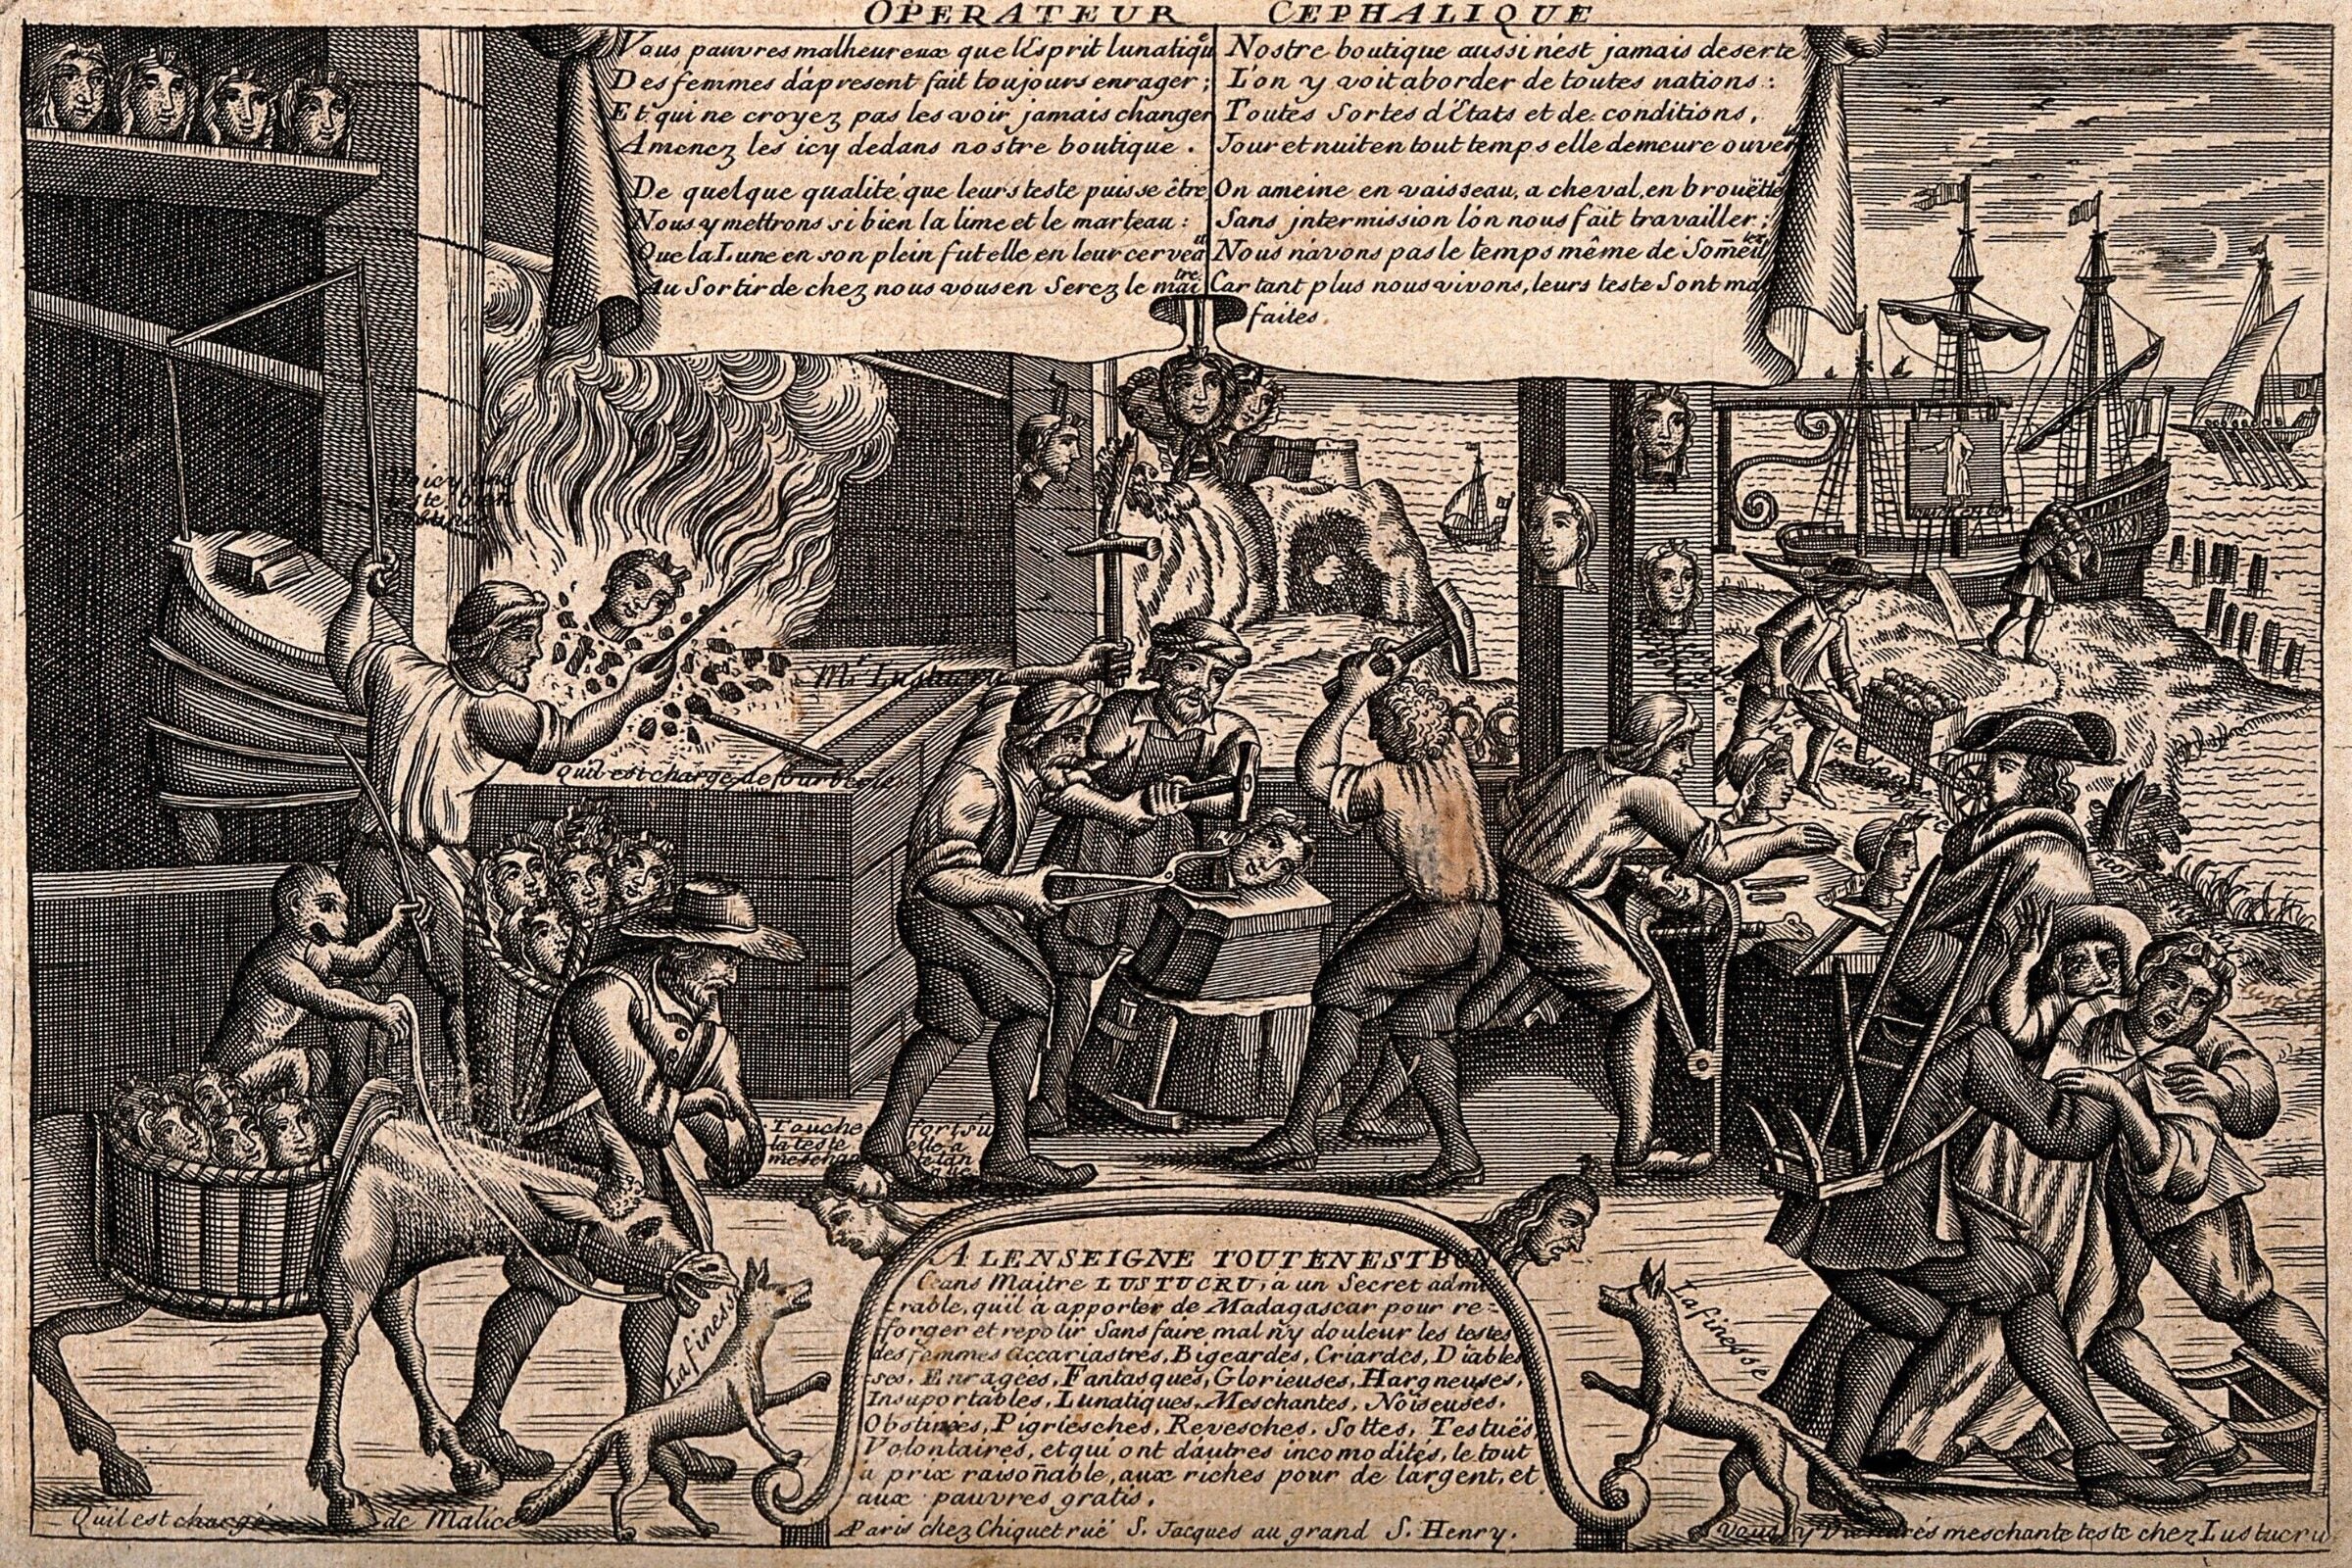 OPERATEUR CEPHALIQUE
Vous pauvres malheureux que l'Esprit lunatique
Des femmes d'apresent fait toujours enrager;
Et qui ne croyez pas les voir jamais changer
Amenez les icy dedans nostre boutique.
De quelque qualité que leurs teste puisse être
Nous y mettrons si bien la lime et le marteau:
Que la Lune en son plein fut elle en leur cerveau
Au Sortir de chez nous vous en Serez le maitre
Nostre boutique aussi n'est jamais deserte
L'on y voit aborder de toutes nations:
Toutes Sortes d'Etats et de conditions,
Jour et nuit en tout temps elle demeure ouver
On ameine en vaisseau, a cheval, en brouëtte
Sans jntermission l'on nous fait travailler;
Nous n'avons pas le temps même de Som̄eiller
Car tant plus nous vivons, leurs teste Sont mal
faites.
Mr. Lustucru
quil est charge de fourberie
Touche
la teste
meschan
A LENSEIGNE TOUT EN EST BON
Ceans Maitre LUSTUCRU, a un Secret admi
rable, quil à apporter de Madagascar pour re-
forger et repolir Sans faire mal n'y douleur les testes
des femmes Accariastres, Bigeardes, Criardes, Diables
ses, Enragées, Fantasques, Glorieuses, Hargneuses,
Insuportables, Lunatiques, Meschantes, Noiseuses,
Obstinées, Pigriesches, Revesches, Sottes, Testuës
Volontaires, et qui ont d'autres incomoditès, le tout
a prix raisoñable, aux riches pour de largent, et
aux pauvres gratis.
La finesse
La finesse
Quil est chargé de Malice
Paris chez Chiquet ruë S. Jacques au grand S. Henry.
Vous y Viendrés meschante teste chez Lustucru